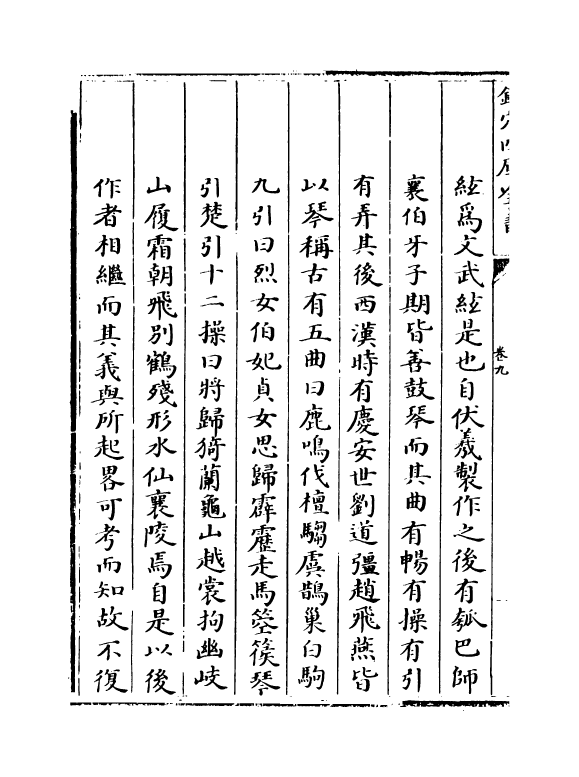 欽定四庫全書
卷九
絃爲文武絃是也自伏羲製作之後有瓠巴師
襄伯牙子期皆善鼓琴而其曲有暢有操有引
有弄其後西漢時有慶安世劉道彊趙飛燕皆
以琴稱古有五曲曰鹿鳴伐檀騶虞鵲巢白駒
九引曰烈女伯妃貞女思歸霹靂走馬箜篌琴
引楚引十二操曰將歸猗蘭龜山越裳拘幽岐
山履霜朝飛別鶴殘形水仙襄陵焉自是以後
作者相繼而其義與所起畧可考而知故不復